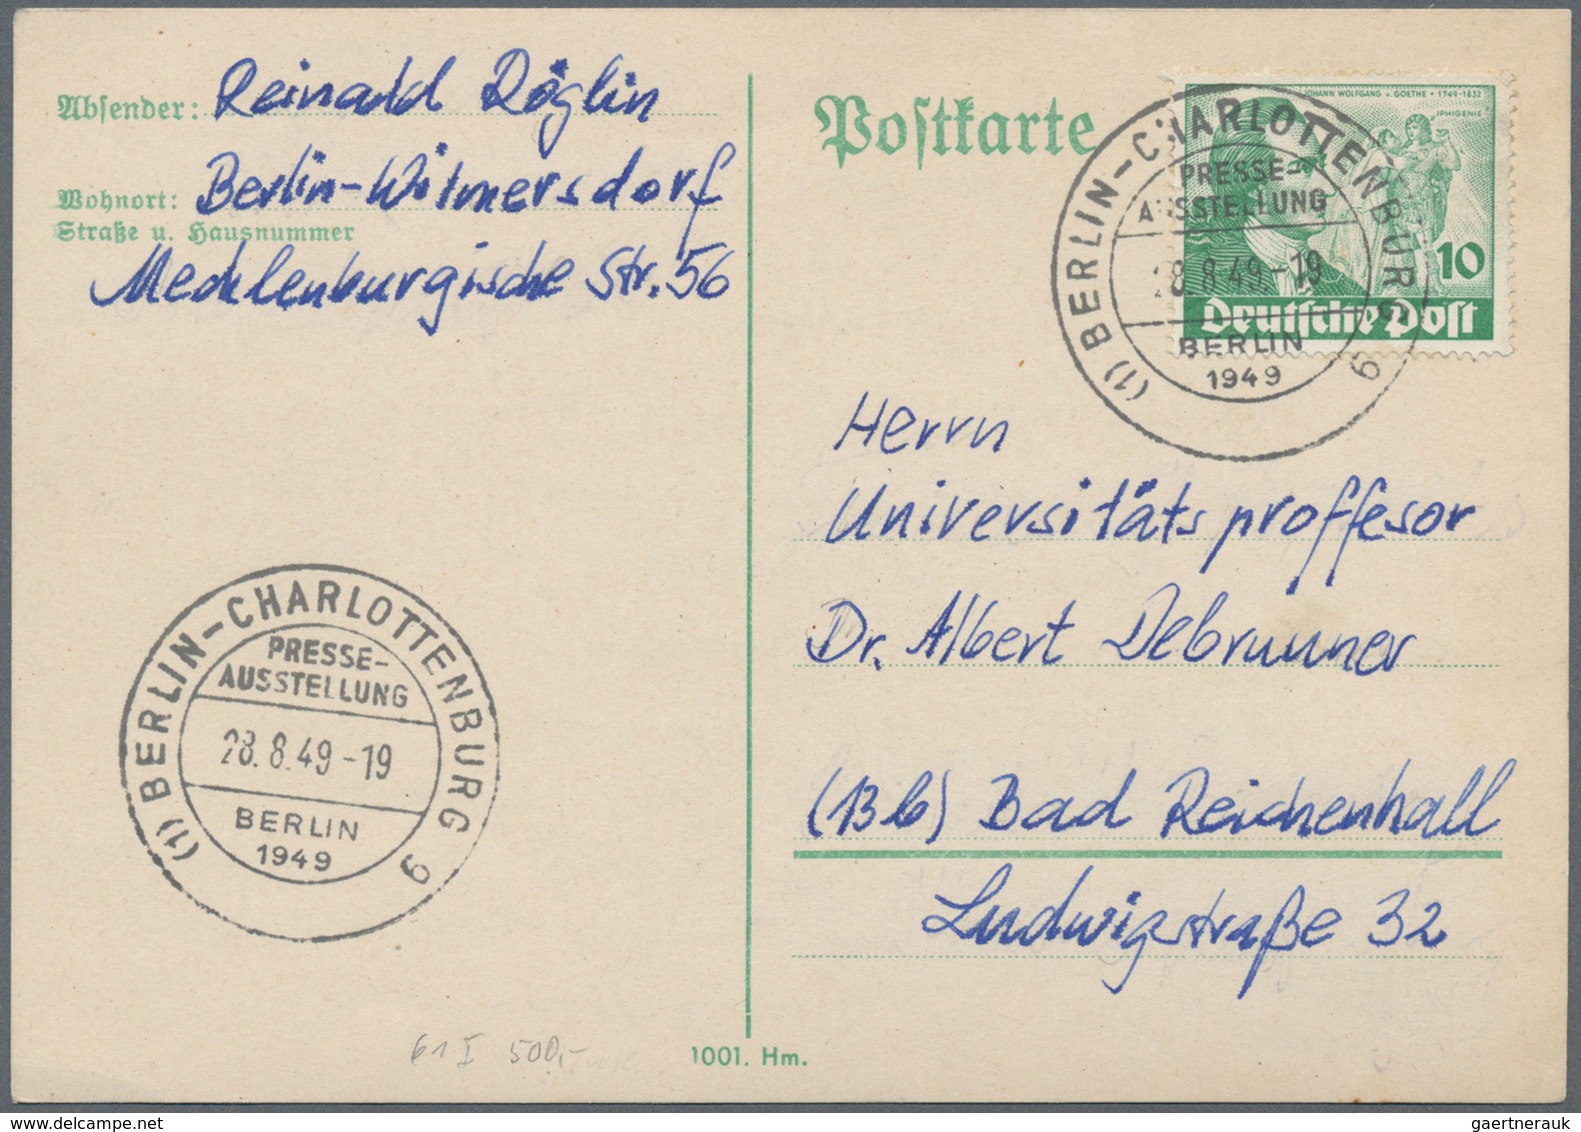 Absender: Reinald Röglin
Wohnort: Berlin-Wilmersdorf
Straße u. Hausnummer
Mecklenburgische Str. 56
Postkarte
JOHANN WOLFGANG v. GOETHE · 1749-1832
IPHIGENIE
10
Deutsche Post
(1) BERLIN-CHARLOTTENBURG 9
PRESSE-
AUSSTELLUNG
28.8.49.-19
BERLIN
1949
Herrn
Universitätsproffesor
Dr. Albert Debrunner
(13b) Bad Reichenhall
Ludwigstraße 32
(1) BERLIN-CHARLOTTENBURG 9
PRESSE-
AUSSTELLUNG
28.8.49-19
BERLIN
1949
61 I 500,-
1001. Hm.
gaertnerauk @ delcampe.net